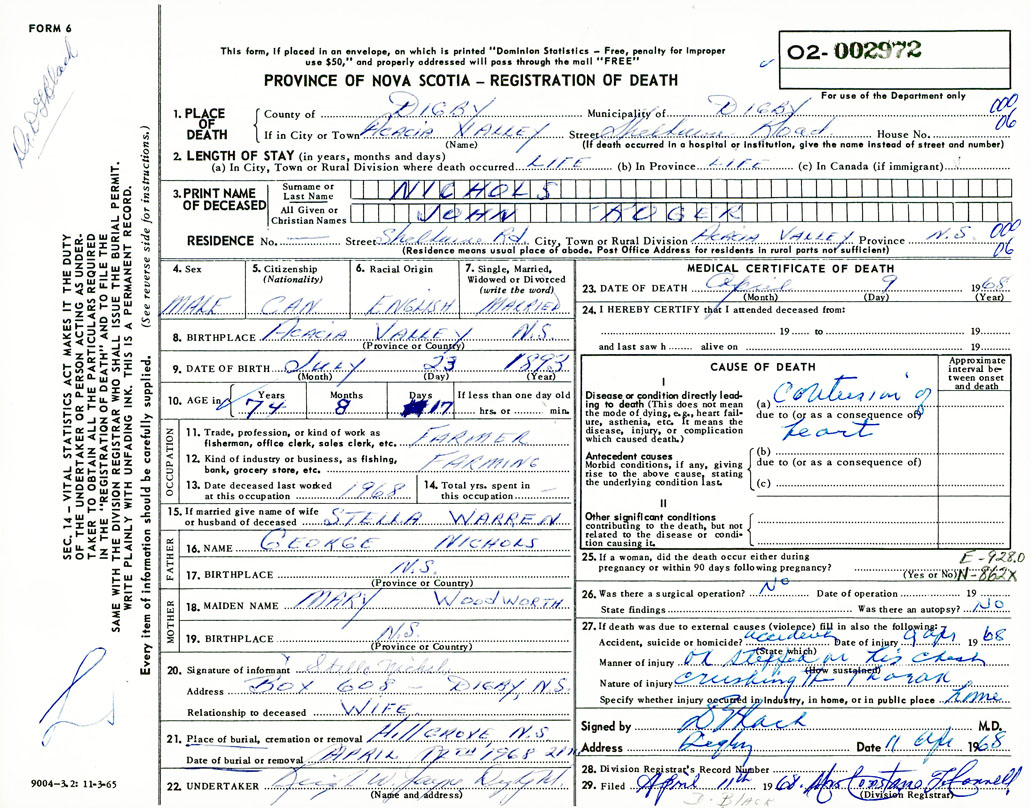 FORM 6
This form, if placed in an envelope, on which is printed "Dominion Statistics – Free, penalty for improper
use $50," and properly addressed will pass through the mail "FREE"
PROVINCE OF NOVA SCOTIA – REGISTRATION OF DEATH
02-002972
For use of the Department only
SEC. 14 – VITAL STATISTICS ACT MAKES IT THE DUTY
OF THE UNDERTAKER OR PERSON ACTING AS UNDER-
TAKER TO OBTAIN ALL THE PARTICULARS REQUIRED
IN THE "REGISTRATION OF DEATH" AND TO FILE THE
SAME WITH THE DIVISION REGISTRAR WHO SHALL ISSUE THE BURIAL PERMIT.
WRITE PLAINLY WITH UNFADING INK. THIS IS A PERMANENT RECORD.
Every item of information should be carefully supplied. (See reverse side for instructions.)
1. PLACE OF DEATH County of DIGBY Municipality of DIGBY 000
If in City or Town ACACIA VALLEY Street Shelburne Road House No. 06
(Name) (If death occurred in a hospital or institution, give the name instead of street and number)
2. LENGTH OF STAY (in years, months and days)
(a) In City, Town or Rural Division where death occurred LIFE (b) In Province LIFE (c) In Canada (if immigrant)
3. PRINT NAME OF DECEASED Surname or Last Name NICHOLS
All Given or Christian Names JOHN ROGER
RESIDENCE No. — Street Shelburne Rd. City, Town or Rural Division ACACIA VALLEY Province N.S. 000
(Residence means usual place of abode. Post Office Address for residents in rural parts not sufficient) 06
4. Sex 5. Citizenship (Nationality) 6. Racial Origin 7. Single, Married, Widowed or Divorced (write the word)
MALE CAN. ENGLISH MARRIED
8. BIRTHPLACE ACACIA VALLEY N.S.
(Province or Country)
9. DATE OF BIRTH JULY 23 1893
(Month) (Day) (Year)
10. AGE in Years Months Days If less than one day old
74 8 17 hrs. or min.
OCCUPATION
11. Trade, profession, or kind of work as
fisherman, office clerk, sales clerk, etc. FARMER
12. Kind of industry or business, as fishing,
bank, grocery store, etc. FARMING
13. Date deceased last worked
at this occupation 1968
14. Total yrs. spent in
this occupation –
15. If married give name of wife
or husband of deceased STELLA WARREN
FATHER
16. NAME GEORGE NICHOLS
17. BIRTHPLACE N.S.
(Province or Country)
MOTHER
18. MAIDEN NAME MARY WOODWORTH
19. BIRTHPLACE N.S.
(Province or Country)
20. Signature of informant Stella Nichols
Address BOX 608 – DIGBY, N.S.
Relationship to deceased WIFE
21. Place of burial, cremation or removal HILLGROVE N.S.
Date of burial or removal APRIL 1968
22. UNDERTAKER
(Name and address)
9004–3.2: 11-3-65
MEDICAL CERTIFICATE OF DEATH
23. DATE OF DEATH April 9 1968
(Month) (Day) (Year)
24. I HEREBY CERTIFY that I attended deceased from:
19 to 19
and last saw h alive on 19
CAUSE OF DEATH
Approximate interval be-
tween onset
and death
I
Disease or condition directly lead-
ing to death (This does not mean
the mode of dying, e.g., heart fail-
ure, asthenia, etc. It means the
disease, injury, or complication
which caused death.)
(a) Contusion of
due to (or as a consequence of)
heart
Antecedent causes
Morbid conditions, if any, giving
rise to the above cause, stating
the underlying condition last.
(b)
due to (or as a consequence of)
(c)
II
Other significant conditions
contributing to the death, but not
related to the disease or condi-
tion causing it.
25. If a woman, did the death occur either during
pregnancy or within 90 days following pregnancy? (Yes or No)
E-928.0
N-862X
26. Was there a surgical operation? No Date of operation 19
State findings Was there an autopsy? No
27. If death was due to external causes (violence) fill in also the following:
Accident, suicide or homicide? accident Date of injury 9 apr 1968
(State which)
Manner of injury Ox stepped on his chest
(How sustained)
Nature of injury crushing the thorax
Specify whether injury occurred in industry, in home, or in public place home
Signed by M.D.
Address Digby Date 11 Apr 1968
28. Division Registrar's Record Number
29. Filed April 11th 1968 Mrs Constance
(Division Registrar)
D. BLACK